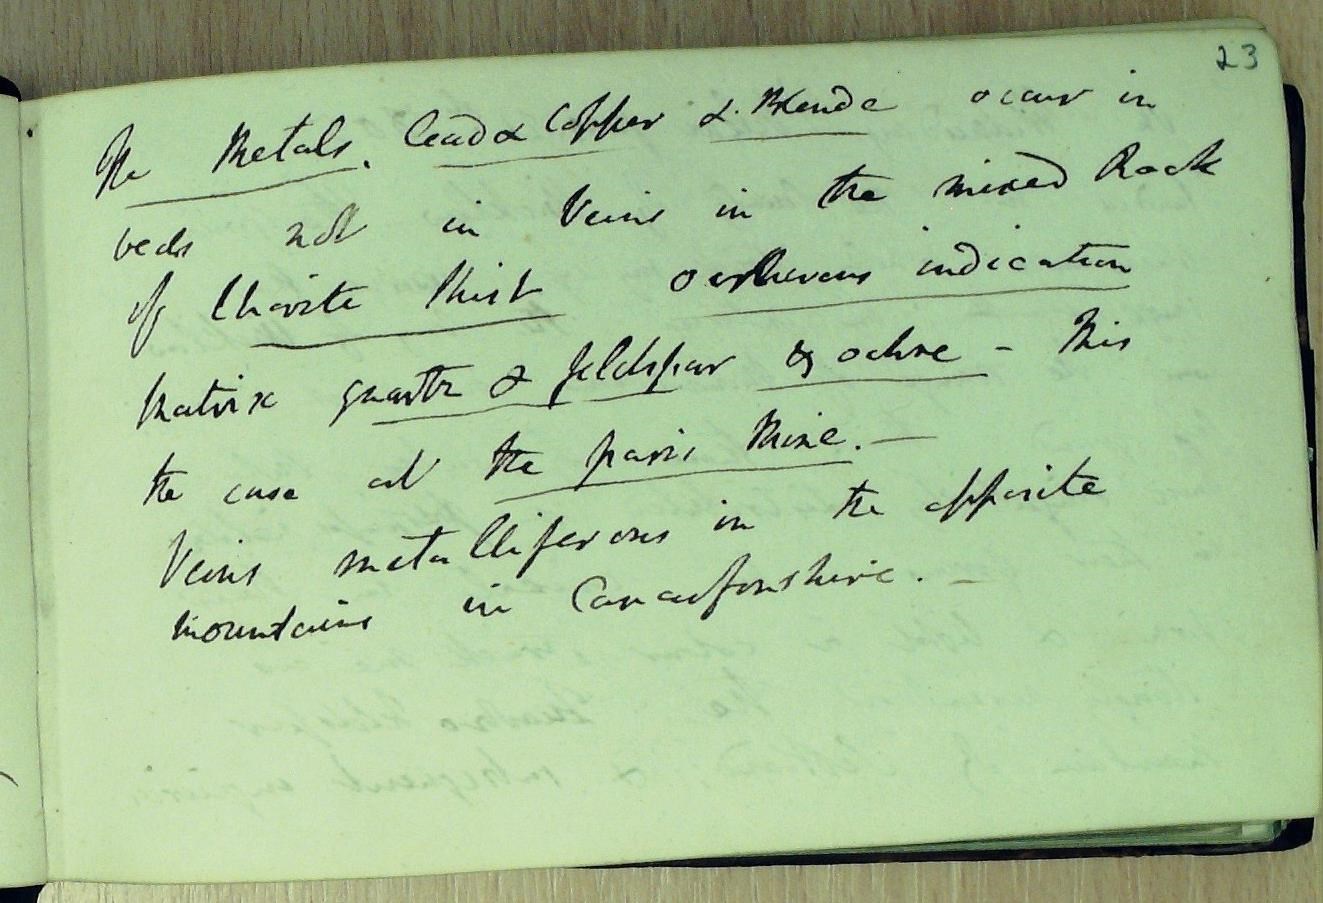 23
The Metals. lead & Copper & Blende occur in
beds not in Veins in the mixed Rock
of Chorite Shist indication
Matrix quartz & feldspar & ochre - This
the case at the paris Mine. —
Veins metalliferous in the opposite
mountains in Canaafonshire. -